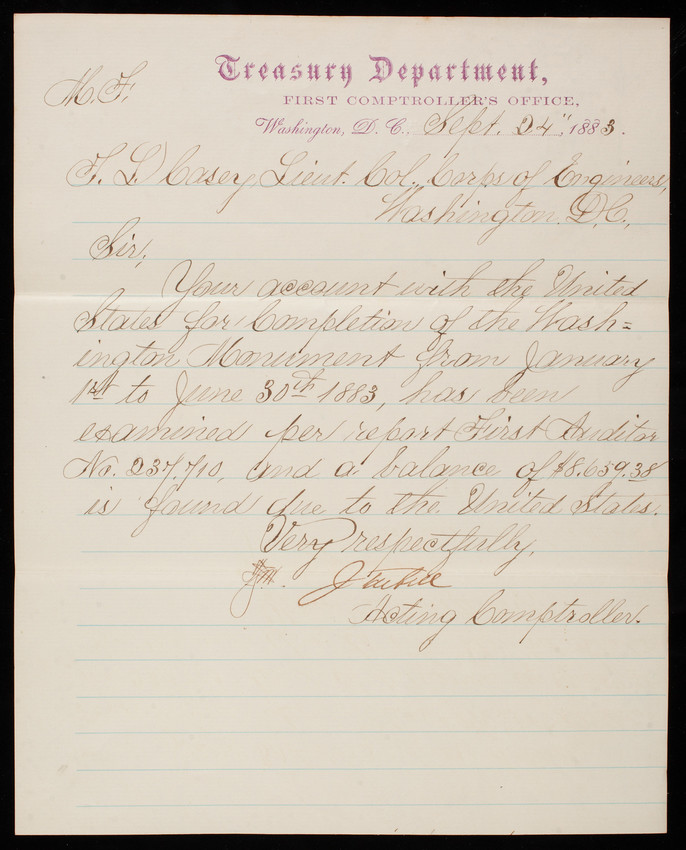 M. F.
Treasury Department,
FIRST COMPTROLLER'S OFFICE,
Washington, D. C., Sept. 24", 1883.
T. L. Casey, Lieut. Col., Corps of Engineers,
Washington D.C.,
Sir;
Your account with the United
States for Completion of the Wash=
ington Monument from January
1st to June 30th 1883, has been
examined per report First Auditor
No. 237,710, and a balance of $8,659.38
is found due to the United States.
Very respectfully,
Acting Comptroller.